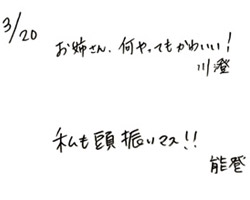 3/20
お姉さん、何やってもかわいい!
川澄
私も頭振いマス!!
能登